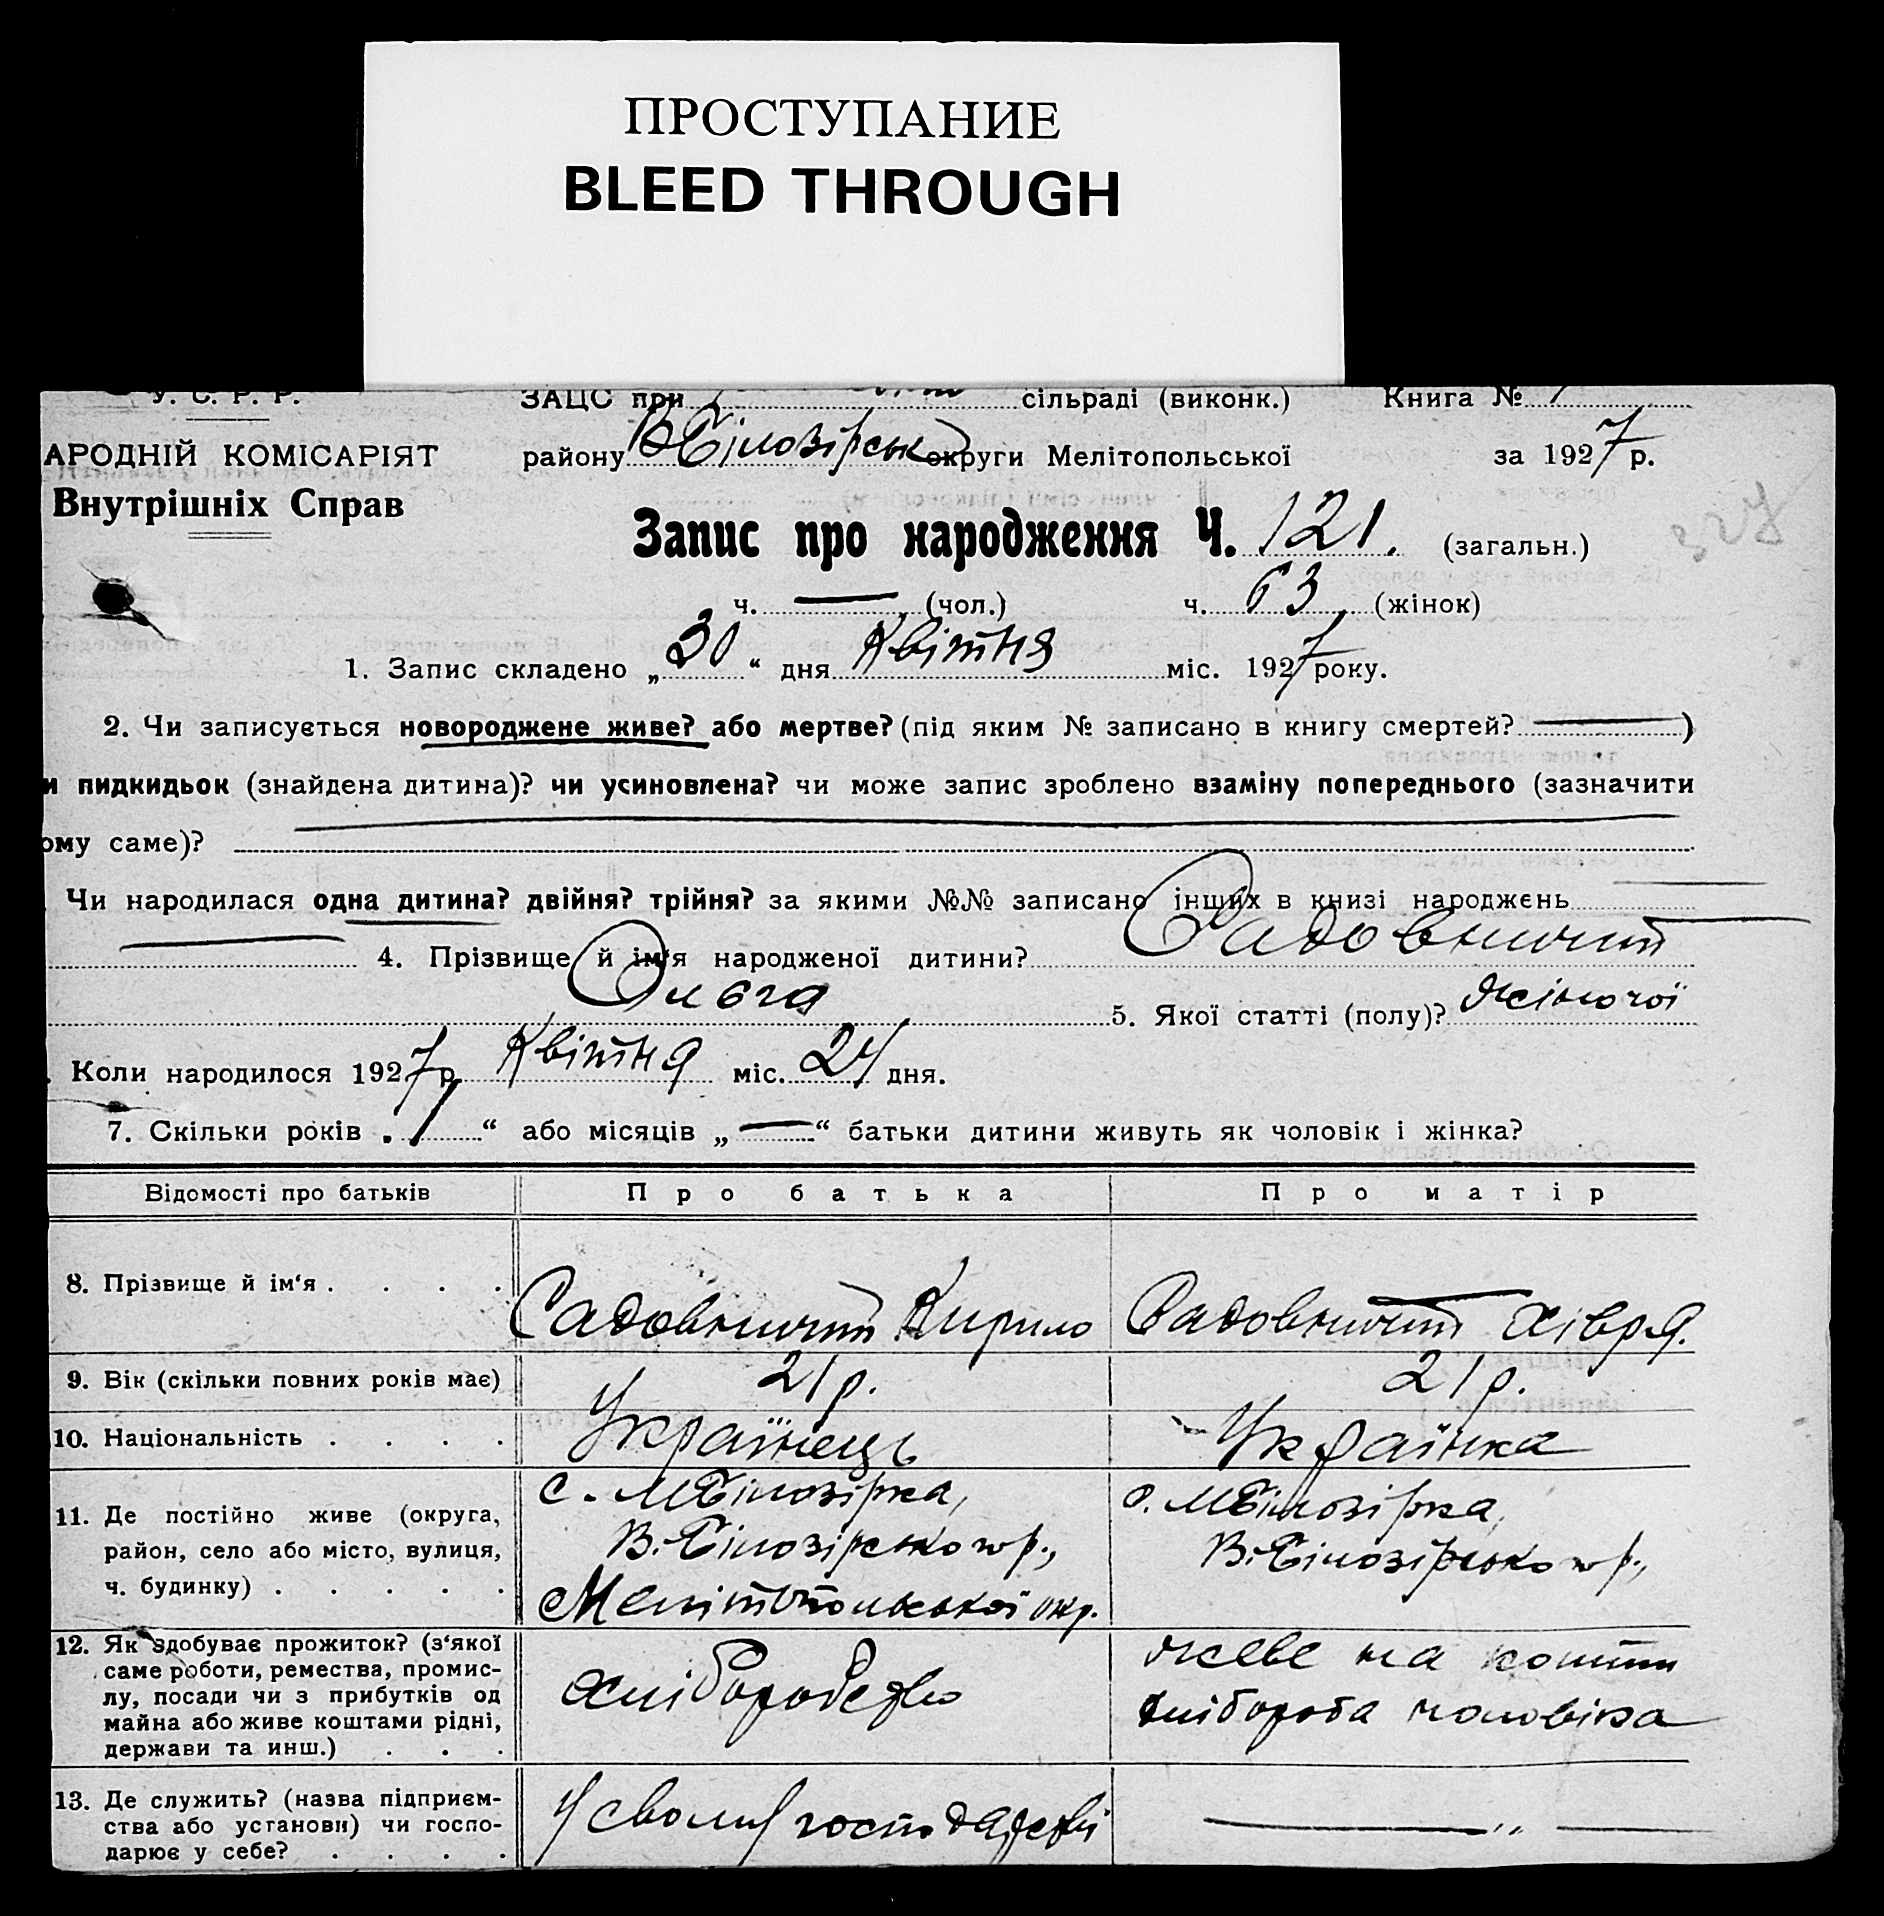 ПРОСТУПАНИЕ
BLEED THROUGH
У. С. Р. Р.
ЗАЦС при сільраді (виконк.) Книга №
АРОДНІЙ КОМІСАРІЯТ району В Білозірськ округи Мелітопольської за 1927 р.
Внутрішніх Справ
Запис про народження Ч. 121. (загальн.)
ч. — (чол.) ч. 63 (жінок)
1. Запис складено „30“ дня Квітня міс. 1927 року.
2. Чи записується новороджене живе? або мертве? (під яким № записано в книгу смертей? —)
и пидкидьок (знайдена дитина)? чи усиновлена? чи може запис зроблено взаміну попереднього (зазначити
ому саме)?
Чи народилася одна дитина? двійня? трійня? за якими №№ записано інших в книзі народжень
4. Прізвище й ім'я народженої дитини? Садовничит
Ольга 5. Якої статті (полу)? жіночої
. Коли народилося 1927 р. Квітня міс. 24 дня.
7. Скільки років „1“ або місяців „—“ батьки дитини живуть як чоловік і жінка?
Відомості про батьків Про батька Про матір
8. Прізвище й ім'я . . . . Садовничит Кирило Садовничит Хівря.
9. Вік (скільки повних років має) 21 р. 21 р.
10. Національність . . . . Українець Українка
11. Де постійно живе (округа,
район, село або місто, вулиця,
ч. будинку) . . . . .
с. МБілозірка,
В.-Білозірського р.,
Мелітопольської окр.
с. МБілозірка,
В.-Білозірського р.,
12. Як здобуває прожиток? (з'якої
саме роботи, ремества, промис-
лу, посади чи з прибутків од
майна або живе коштами рідні,
держави та инш.) . . .
хліборобство
живе на кошти
хлібороба чоловіка
13. Де служить? (назва підприєм-
ства або установи) чи госпо-
дарює у себе? . . . .
У свому господарстві
— „ —